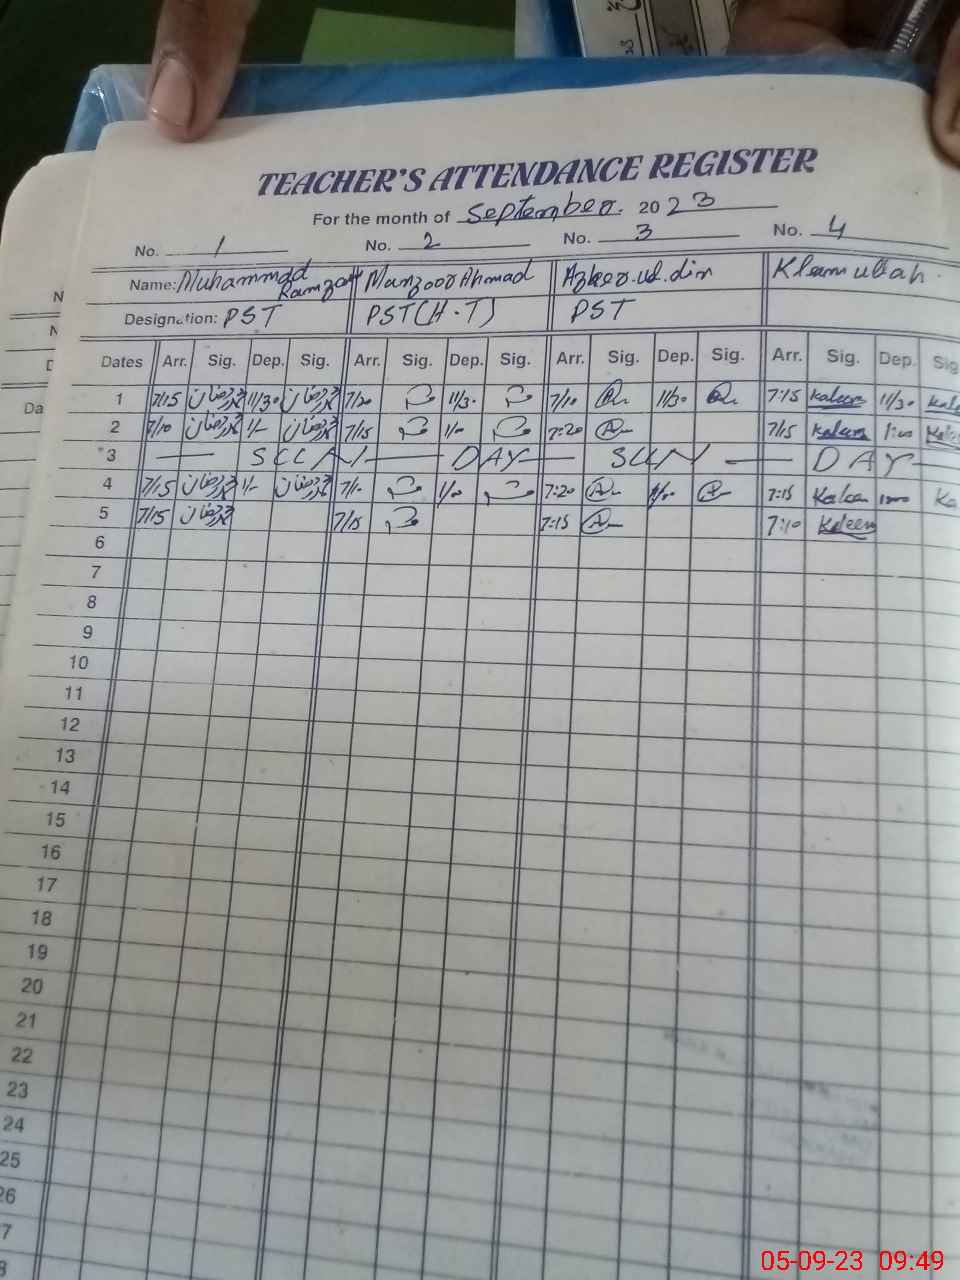 TEACHER'S ATTENDANCE REGISTER
For the month of September. 2023
No. 1 No. 2 No. 3 No. 4
Name: Muhammad Ramzan Manzoor Ahmad Azheer.ud.din Kleemullah.
Designation: PST PST (H.T) PST
Dates Arr. Sig. Dep. Sig. Arr. Sig. Dep. Sig. Arr. Sig. Dep. Sig. Arr. Sig. Dep. Sig
1 7/15 محمد رمضان 11/30 محمد رمضان 7/20 11/30 7/10 11/30 7:15 Kaleem 11/30
2 7/10 محمد رمضان 1/- محمد رمضان 7/15 1/0 7:20 7/15 Kaleem 1:00
3 SUN DAY SUN DAY
4 7/15 محمد رمضان 1/- محمد رمضان 7/10 1/00 7:20 1/00 7:15 Kaleem
5 7/15 محمد رمضان 7/15 7:15 7:10 Kaleem
6
7
8
9
10
11
12
13
14
15
16
17
18
19
20
21
22
23
24
25
26
7
8
05-09-23 09:49